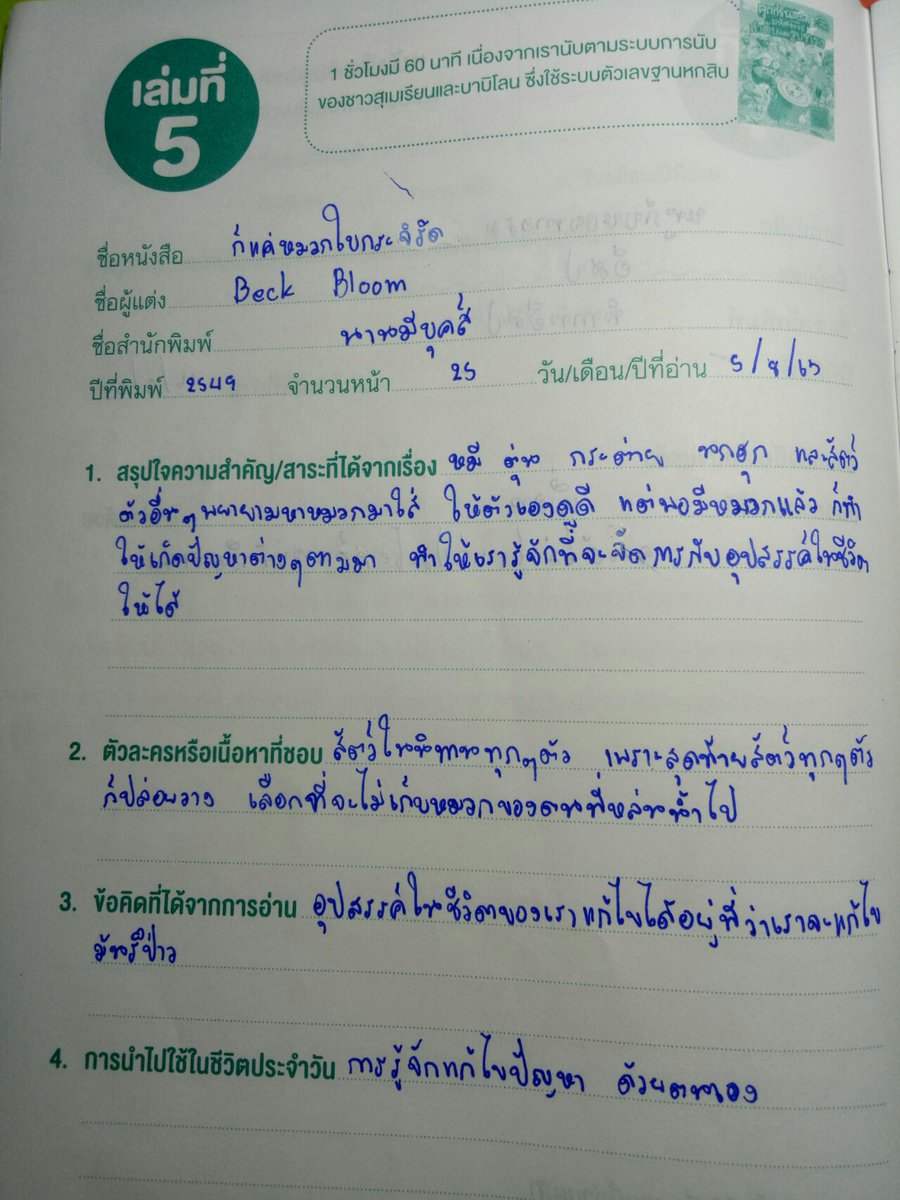 เล่มที่
5
1 ชั่วโมงมี 60 นาที เนื่องจากเรานับตามระบบการนับ
ของชาวสุเมเรียนและบาบิโลน ซึ่งใช้ระบบตัวเลขฐานหกสิบ
ชื่อหนังสือ ก็แค่หมวกใบกระจิริด
ชื่อผู้แต่ง Beck Bloom
ชื่อสำนักพิมพ์ นานมีบุคส์
ปีที่พิมพ์ 2549 จำนวนหน้า 25 วัน/เดือน/ปีที่อ่าน 5/8/63
1. สรุปใจความสำคัญ/สาระที่ได้จากเรื่อง หมี ตุ่น กระต่าย นกฮูก และสัตว์
ตัวอื่นๆพยายามหาหมวกมาใส่ ให้ตัวเองดูดี แต่พอมีหมวกแล้ว ก็ทำ
ให้เกิดปัญหาต่างๆตามมา ทำให้เรารู้จักที่จะจัดการกับอุปสรรค์ในชีวิต
ให้ได้
2. ตัวละครหรือเนื้อหาที่ชอบ สัตว์ในนิทานทุกๆตัว เพราะสุดท้ายสัตว์ทุกๆตัว
ก็ปล่อยวาง เลือกที่จะไม่เก็บหมวกของตนที่หล่นน้ำไป
3. ข้อคิดที่ได้จากการอ่าน อุปสรรค์ในชีวิตของเราแก้ไขได้อยู่ที่ว่าเราจะแก้ไข
มันรึป่าว
4. การนำไปใช้ในชีวิตประจำวัน การรู้จักแก้ไขปัญหา ด้วยตนเอง